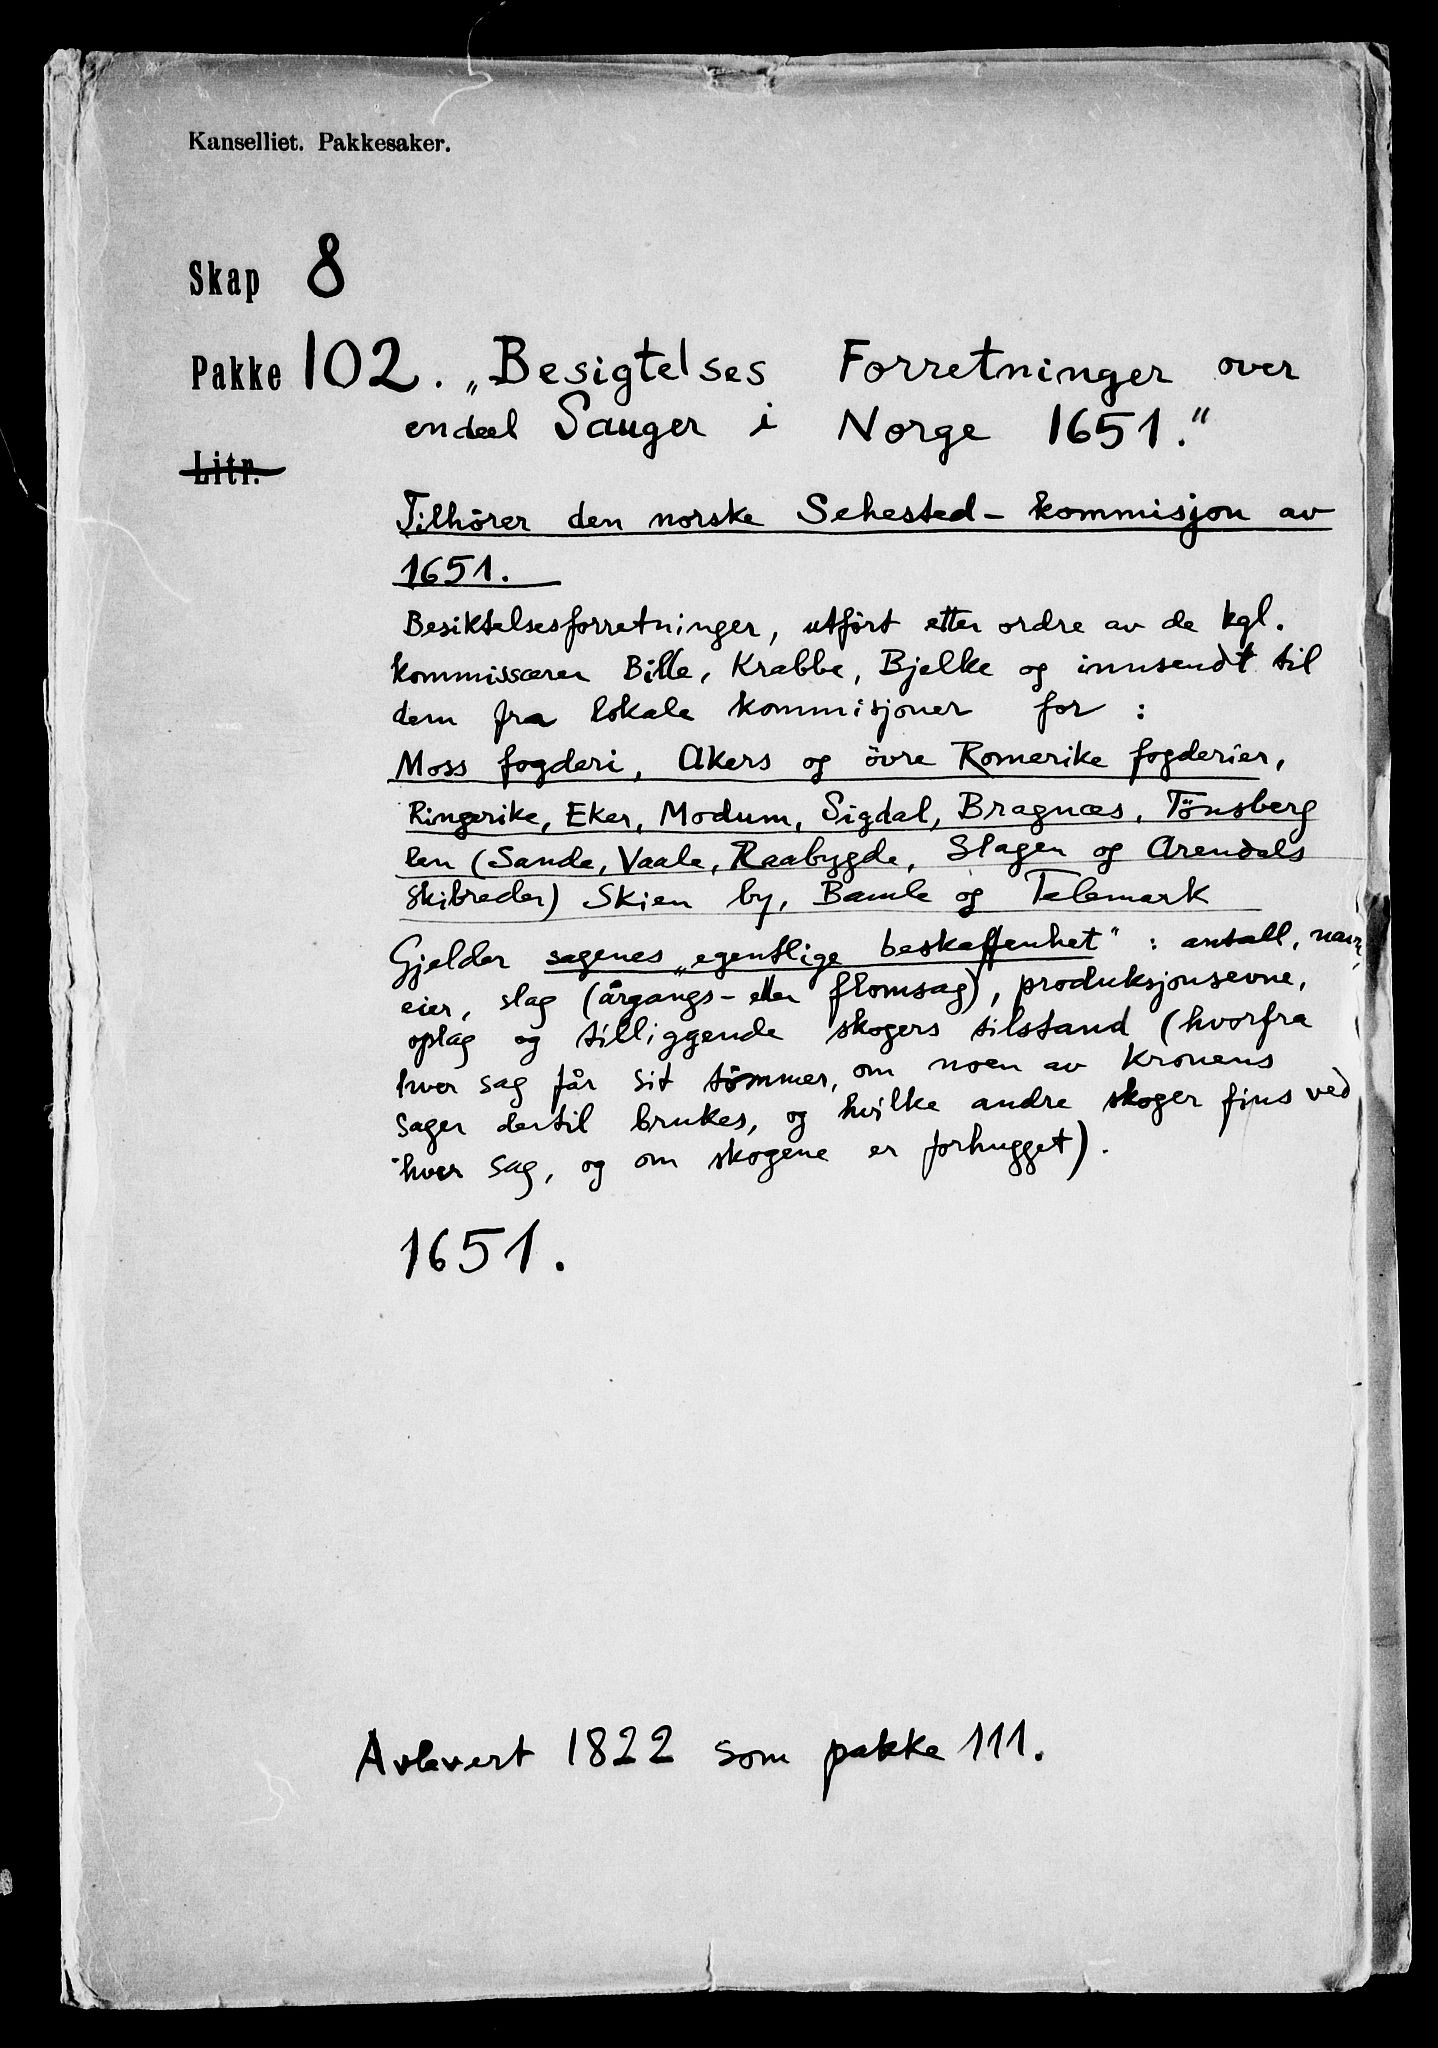 Kanselliet. Pakkesaker.
Skap 8
Pakke 102. „Besigtelses Forretninger over
endeel Sauger i Norge 1651.“
Litr.
Tilhörer den norske Sehested- kommisjon av
1651.
Besiktelsesforretninger, utfört etter ordre av de kgl.
kommissærer Bille, Krabbe, Bjelke og innsendt til
dem fra lokale kommisjoner for :
Moss fogderi, Akers og övre Romerike fogderier,
Ringerike, Eker, Modum, Sigdal, Bragnæs, Tönsberg
len (Sande, Vaale, Raabygde, Slagen og Arendals
skibreder) Skien by, Bamle og Telemark
Gjelder sagenes „egentlige beskaffenhet“ : antall, navn,
eier, slag (årgangs- eller flomsag), produksjonsevne,
oplag og tilliggende skogers tilstand (hvorfra
hver sag får sit tömmer, om noen av Kronens
sager dertil brukes, og hvilke andre skoger fins ved
hver sag, og om skogene er forhugget).
1651.
Avlevert 1822 som pakke 111.